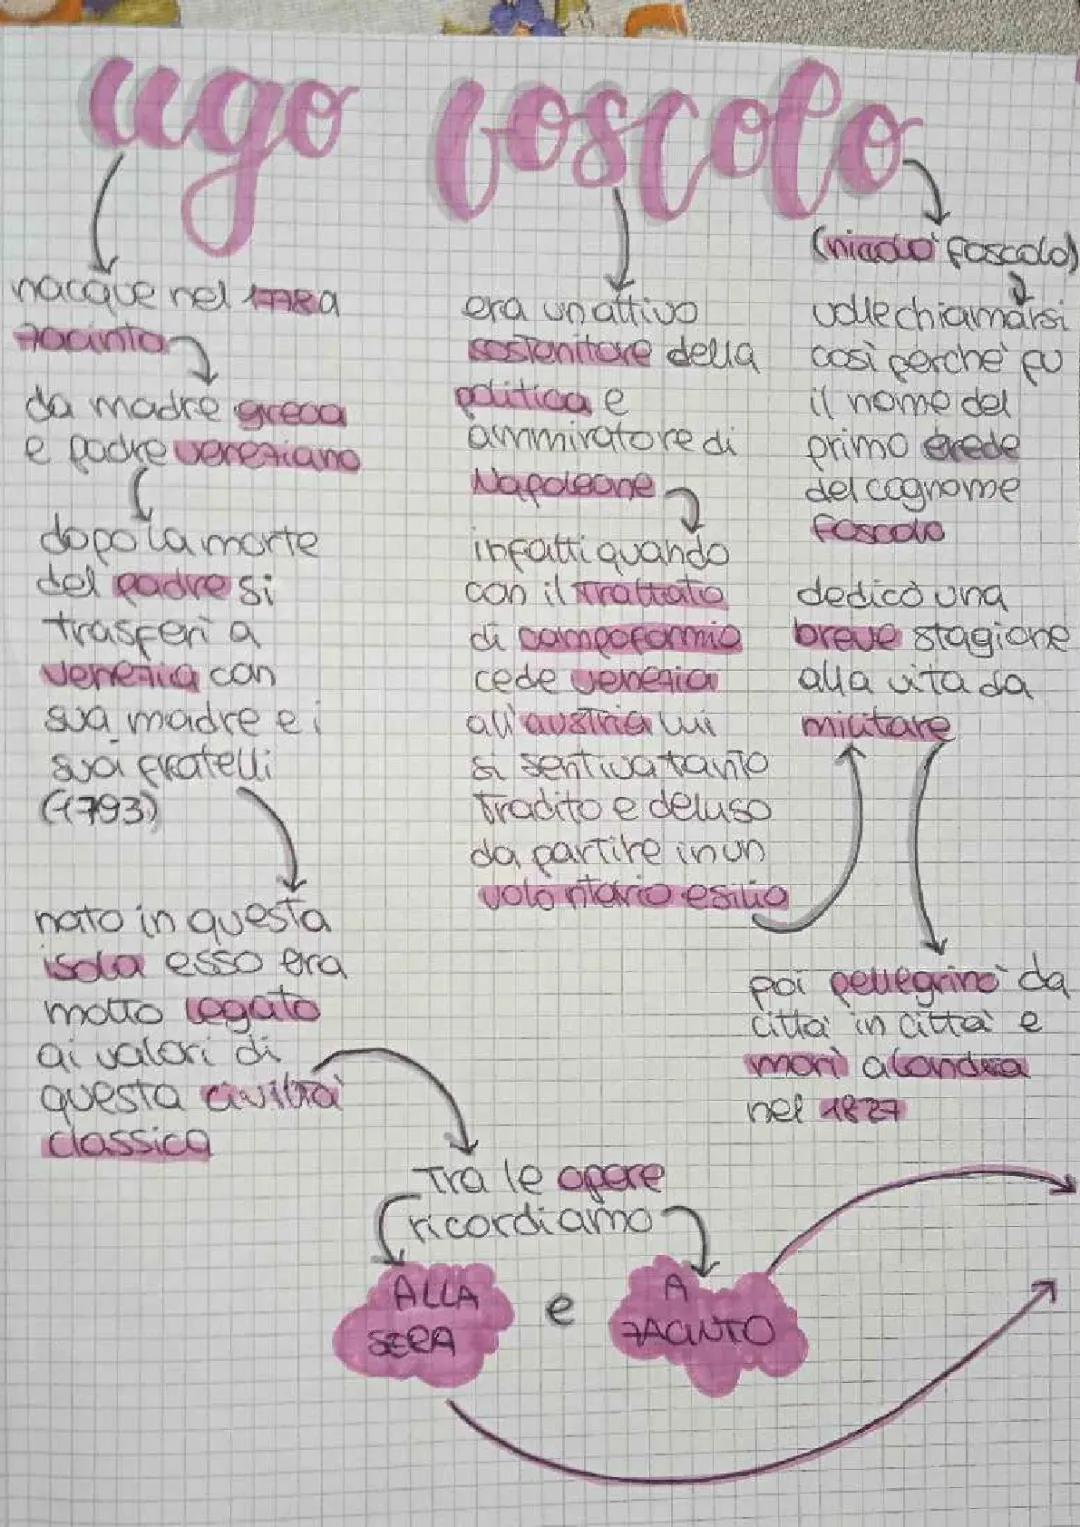 ugo foscolo
nacque nel 1778 a
zacinto
da madre greca
e padre veneziano
dopo la morte
del padre si
trasferì a
venezia con
sua madre e i
suoi fratelli
(1793)
nato in questa
isola esso era
molto legato
ai valori di
questa civiltà
classica
era un attivo
sostenitore della
politica e
ammiratore di
Napoleone
infatti quando
con il trattato
di campoformio
cede venezia
all'austria lui
si sentiva tanto
tradito e deluso
da partire in un
volontario esilio
(nicolò foscolo)
volle chiamarsi
così perché fu
il nome del
primo erede
del cognome
foscolo
dedicò una
breve stagione
alla vita da
militare
poi pellegrinò da
città in città e
morì a londra
nel 1827
Tra le opere
ricordiamo
ALLA
SERA
e
A
ZACINTO